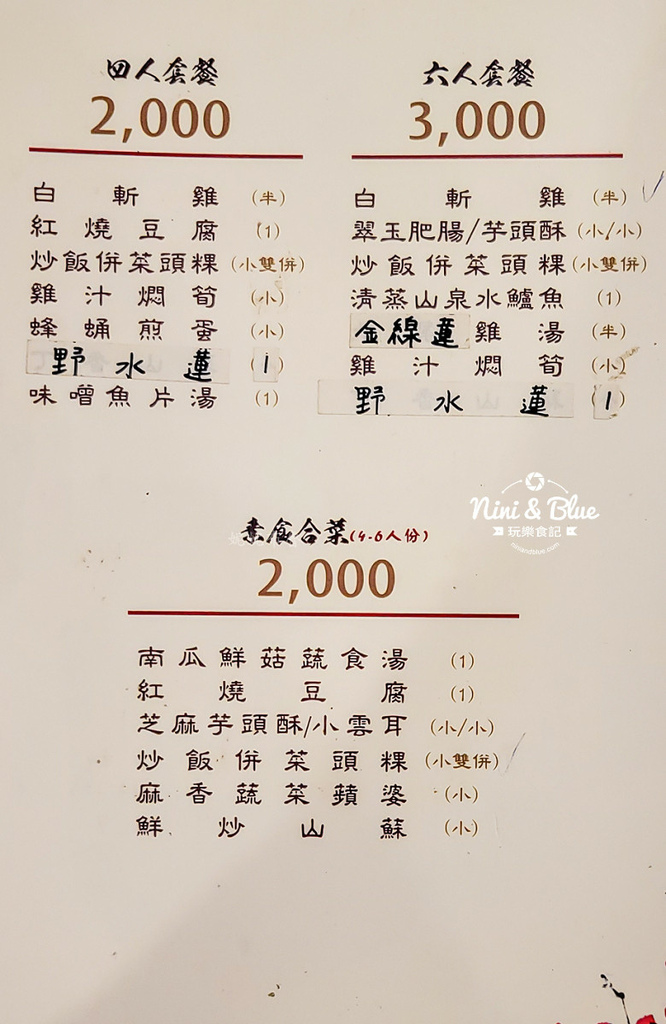 四人套餐
2,000
白斬雞 (半)
紅燒豆腐 (1)
炒飯併菜頭粿 (小雙併)
雞汁燜筍 (小)
蜂蛹煎蛋 (小)
野水蓮 1
味噌魚片湯 (1)
六人套餐
3,000
白斬雞 (半)
翠玉肥腸/芋頭酥 (小/小)
炒飯併菜頭粿 (小雙併)
清蒸山泉水鱸魚 (1)
金線蓮雞湯 (半)
雞汁燜筍 (小)
野水蓮 1
Nini & Blue
玩樂食記
niniandblue.com
素食合菜(4-6人份)
2,000
南瓜鮮菇蔬食湯 (1)
紅燒豆腐 (1)
芝麻芋頭酥/小雲耳 (小/小)
炒飯併菜頭粿 (小雙併)
麻香蔬菜蘋婆 (小)
鮮炒山蘇 (小)